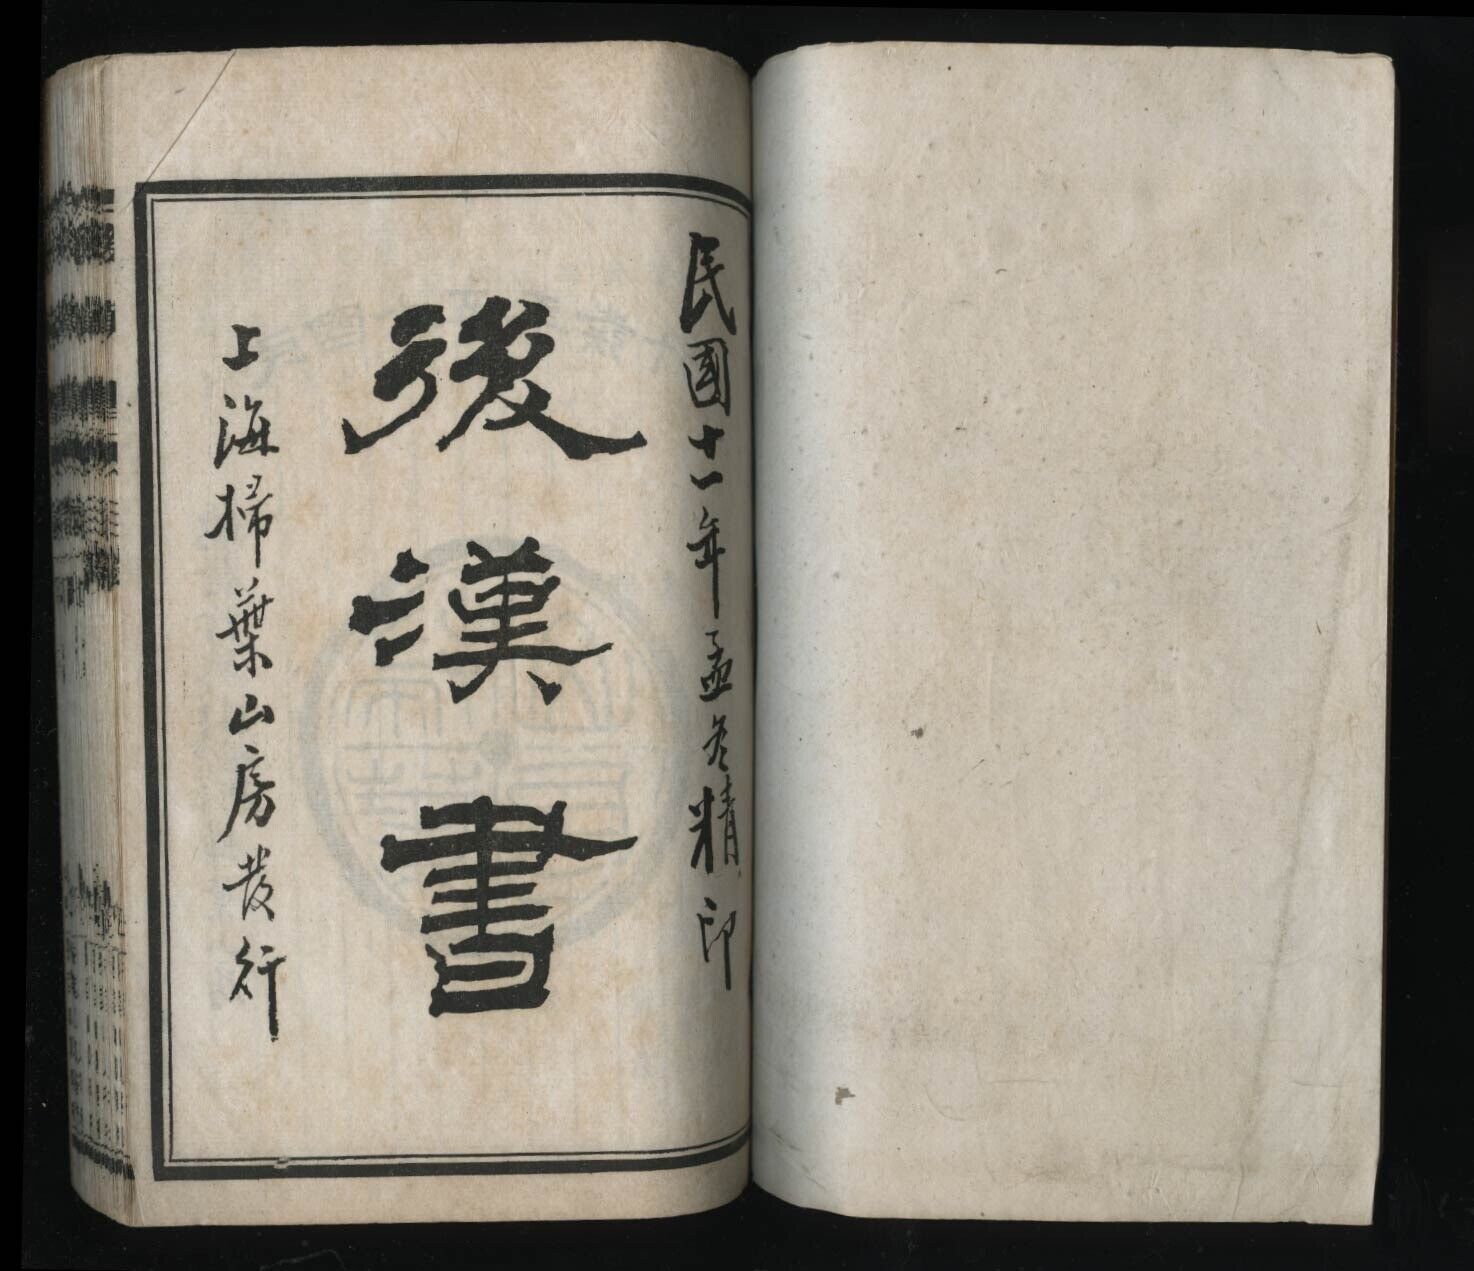 民國十一年孟冬精印
後漢書
上海掃葉山房發行